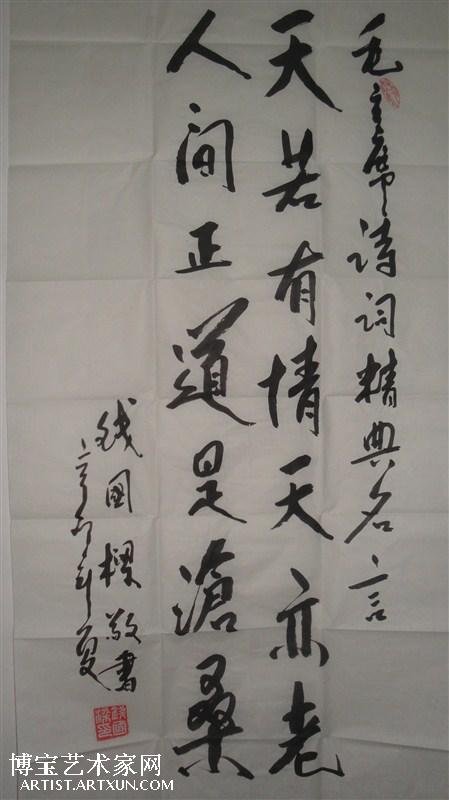 毛主席诗词精典名言
天若有情天亦老
人间正道是滄桑
钱国樑敬書
辛卯年夏
博宝艺术家网
ARTIST.ARTXUN.COM